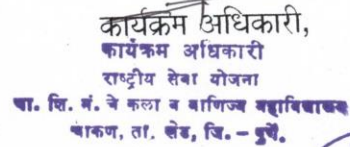 कार्यक्रम अधिकारी,
कार्यक्रम अधिकारी
राष्ट्रीय सेवा योजना
चा. शि. मं. चे कला व वाणिज्य महाविद्यालय
चाकण, ता. खेड, जि. – पुणे.